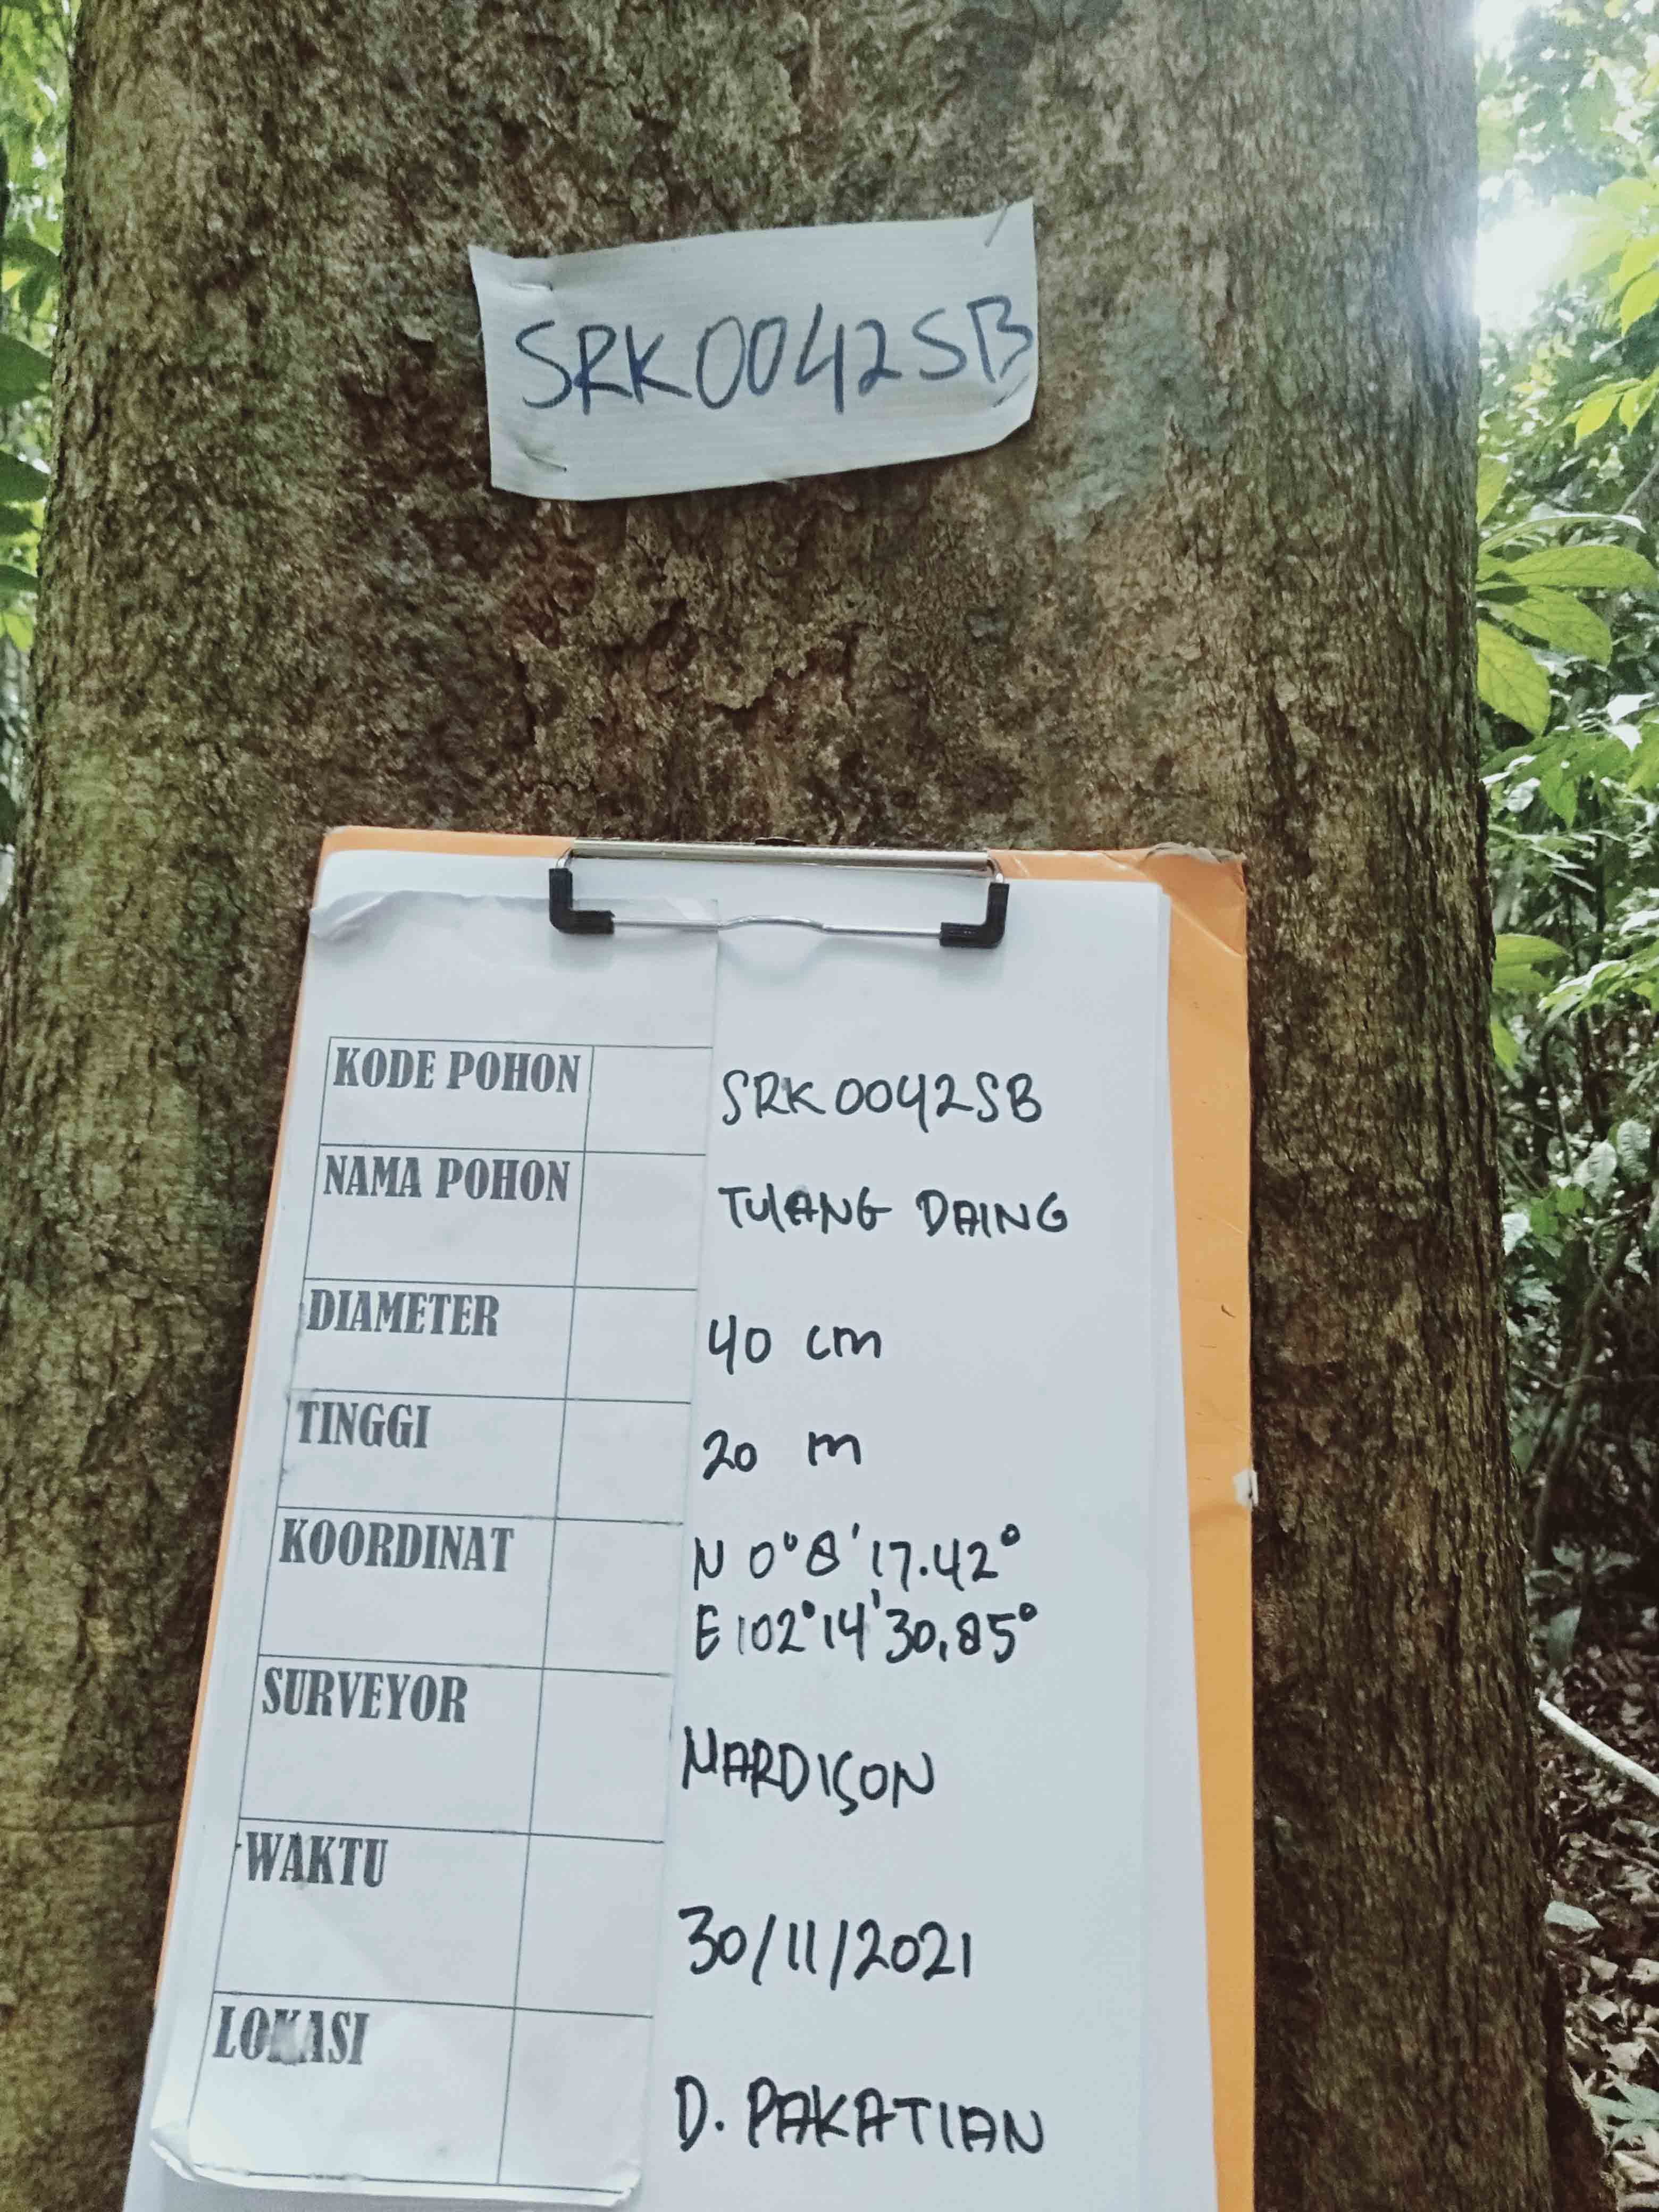 SRK0042SB
KODE POHON SRK0042SB
NAMA POHON TULANG DAING
DIAMETER 40 cm
TINGGI 20 m
KOORDINAT N 0°8'17.42°
E 102°14'30,85°
SURVEYOR MARDISON
WAKTU 30/11/2021
LOKASI D. PAKATIAN